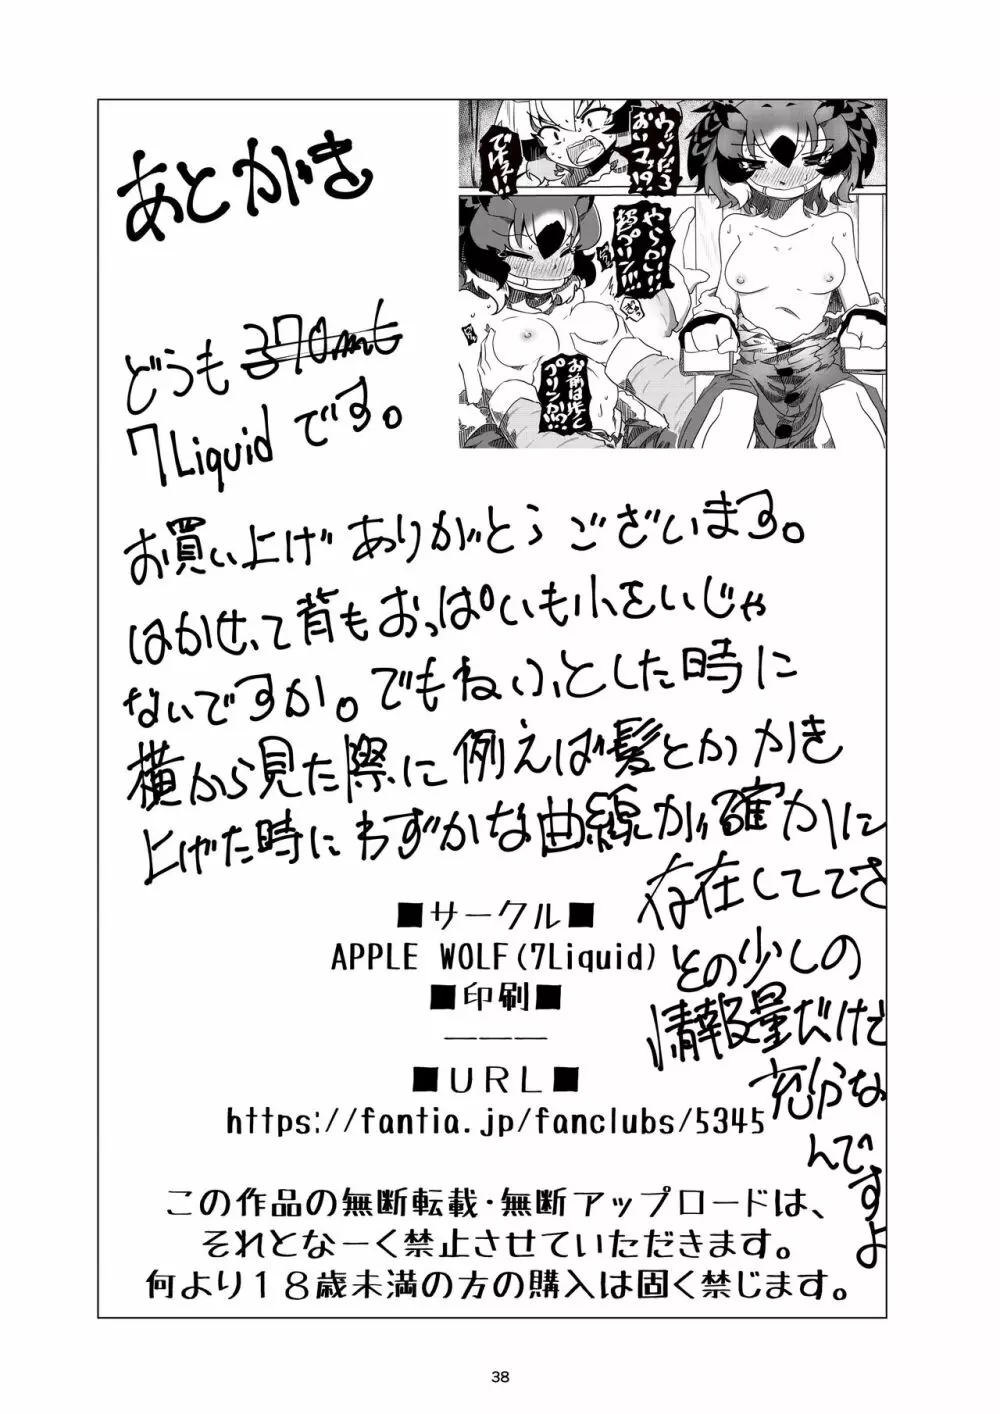 あとがき
ウッソだろ
おいマジ!?
でけぇ!!
やらかい…
超プリン!!!
お前は歩く
プリンか!?
どうも 370ml
7Liquid です。
お買い上げありがとうございます。
はかせって背もおっぱいも小さいじゃ
ないですか。でもねふとした時に
横から見た際に例えば髪とかかき
上げた時にわずかな曲線が確かに
存在してでさ
その少しの
情報量だけど
なんですよ
■サークル■
APPLE WOLF(7Liquid)
■印刷■
―――
■URL■
https://fantia.jp/fanclubs/5345
この作品の無断転載・無断アップロードは、
それとなーく禁止させていただきます。
何より18歳未満の方の購入は固く禁じます。
38